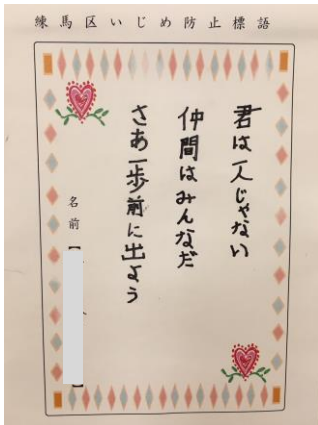 練馬区いじめ防止標語
君は一人じゃない
仲間はみんなだ
さあ一歩前に出よう
名前【 】